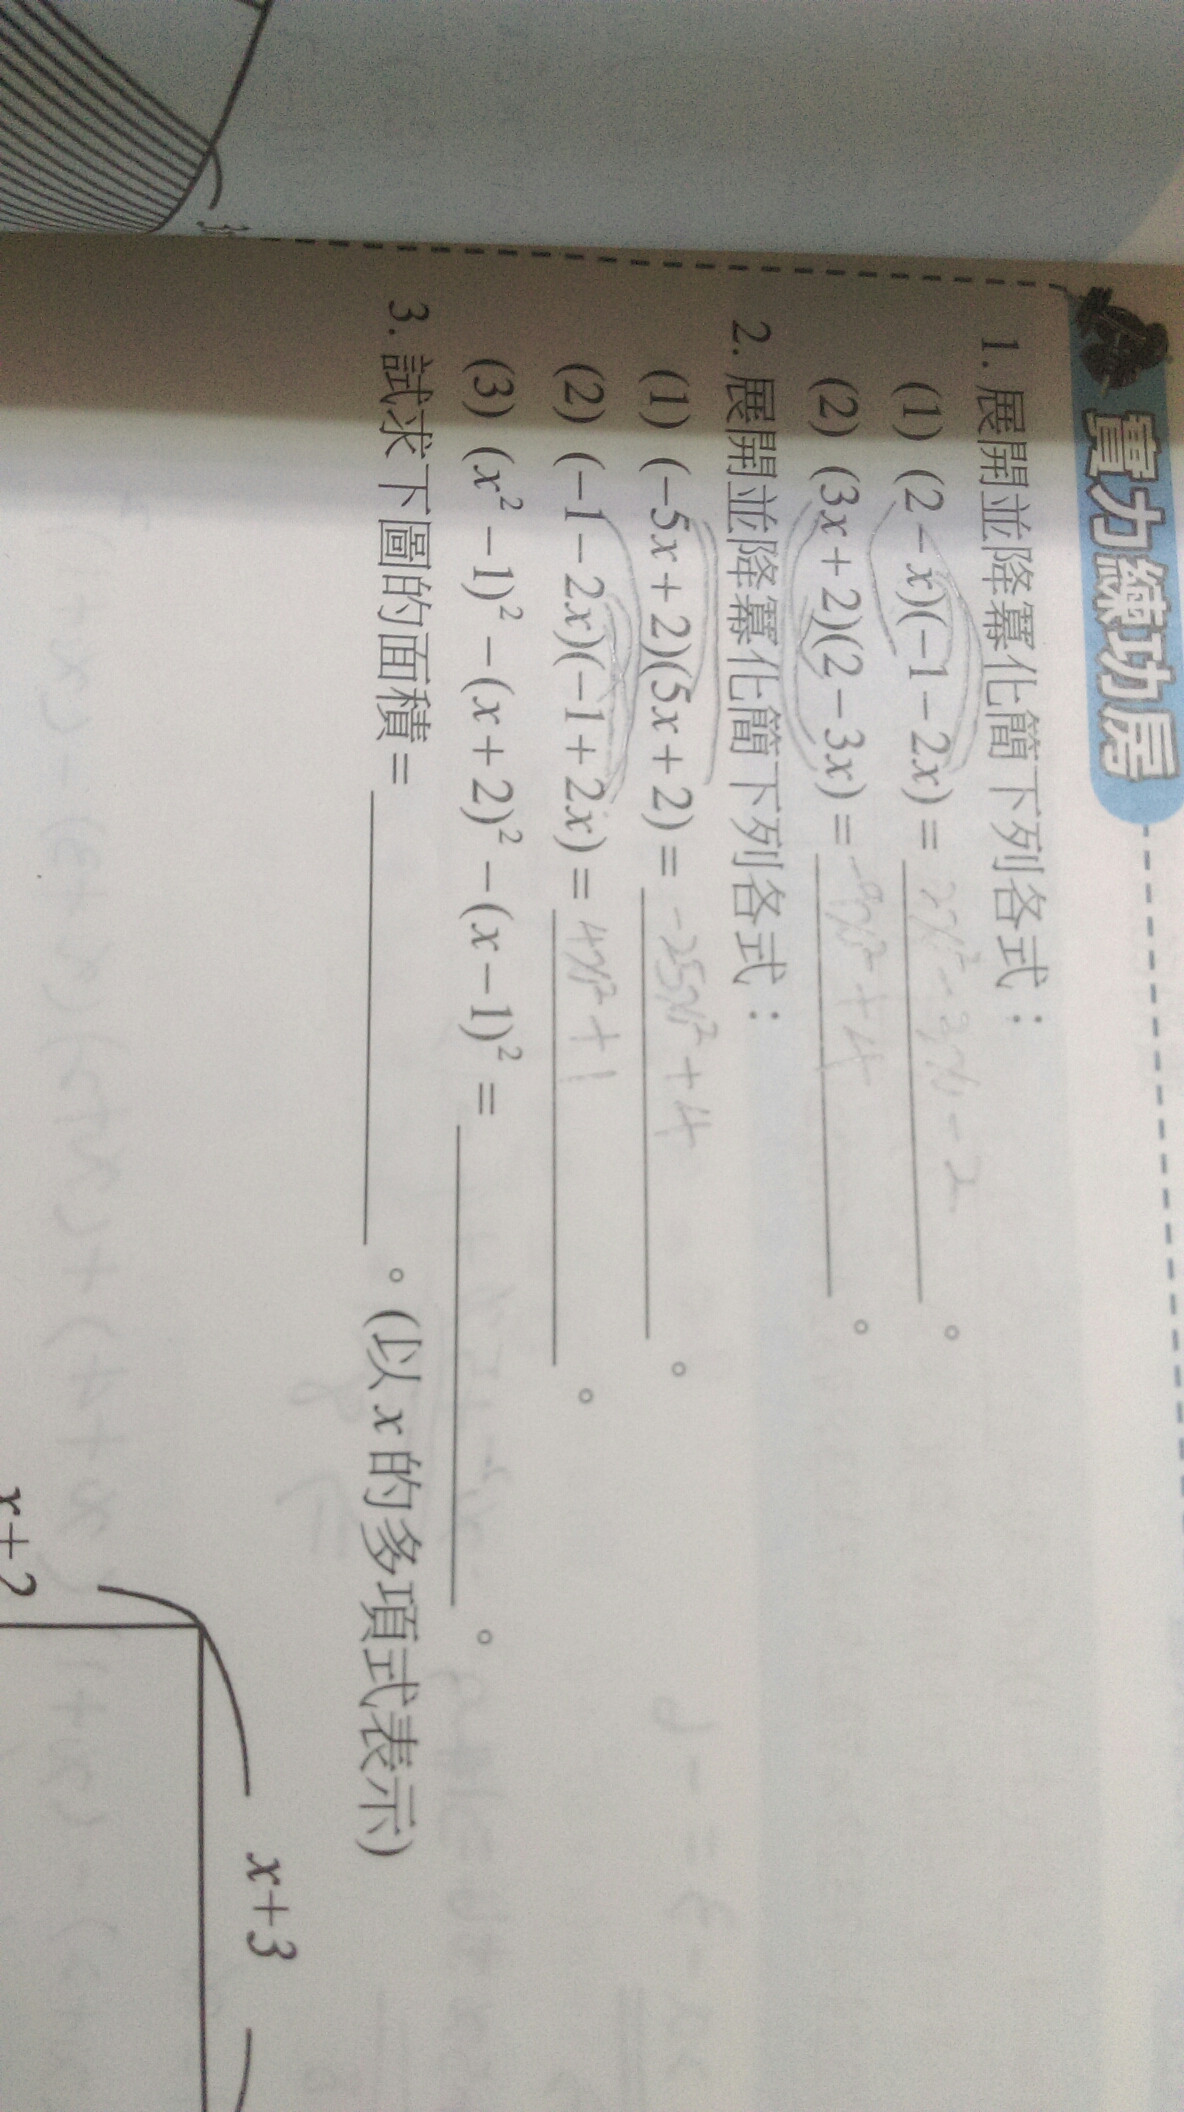 實力練功房
1. 展開並降冪化簡下列各式：
(1) (2-x)(-1-2x)= 2x²-3x-2 。
(2) (3x+2)(2-3x)= -9x²+4 。
2. 展開並降冪化簡下列各式：
(1) (-5x+2)(5x+2)= -25x²+4 。
(2) (-1-2x)(-1+2x)= 4x²+1 。
(3) (x²-1)²-(x+2)²-(x-1)²= 。
3. 試求下圖的面積= 。(以x的多項式表示)
x+3
x+2